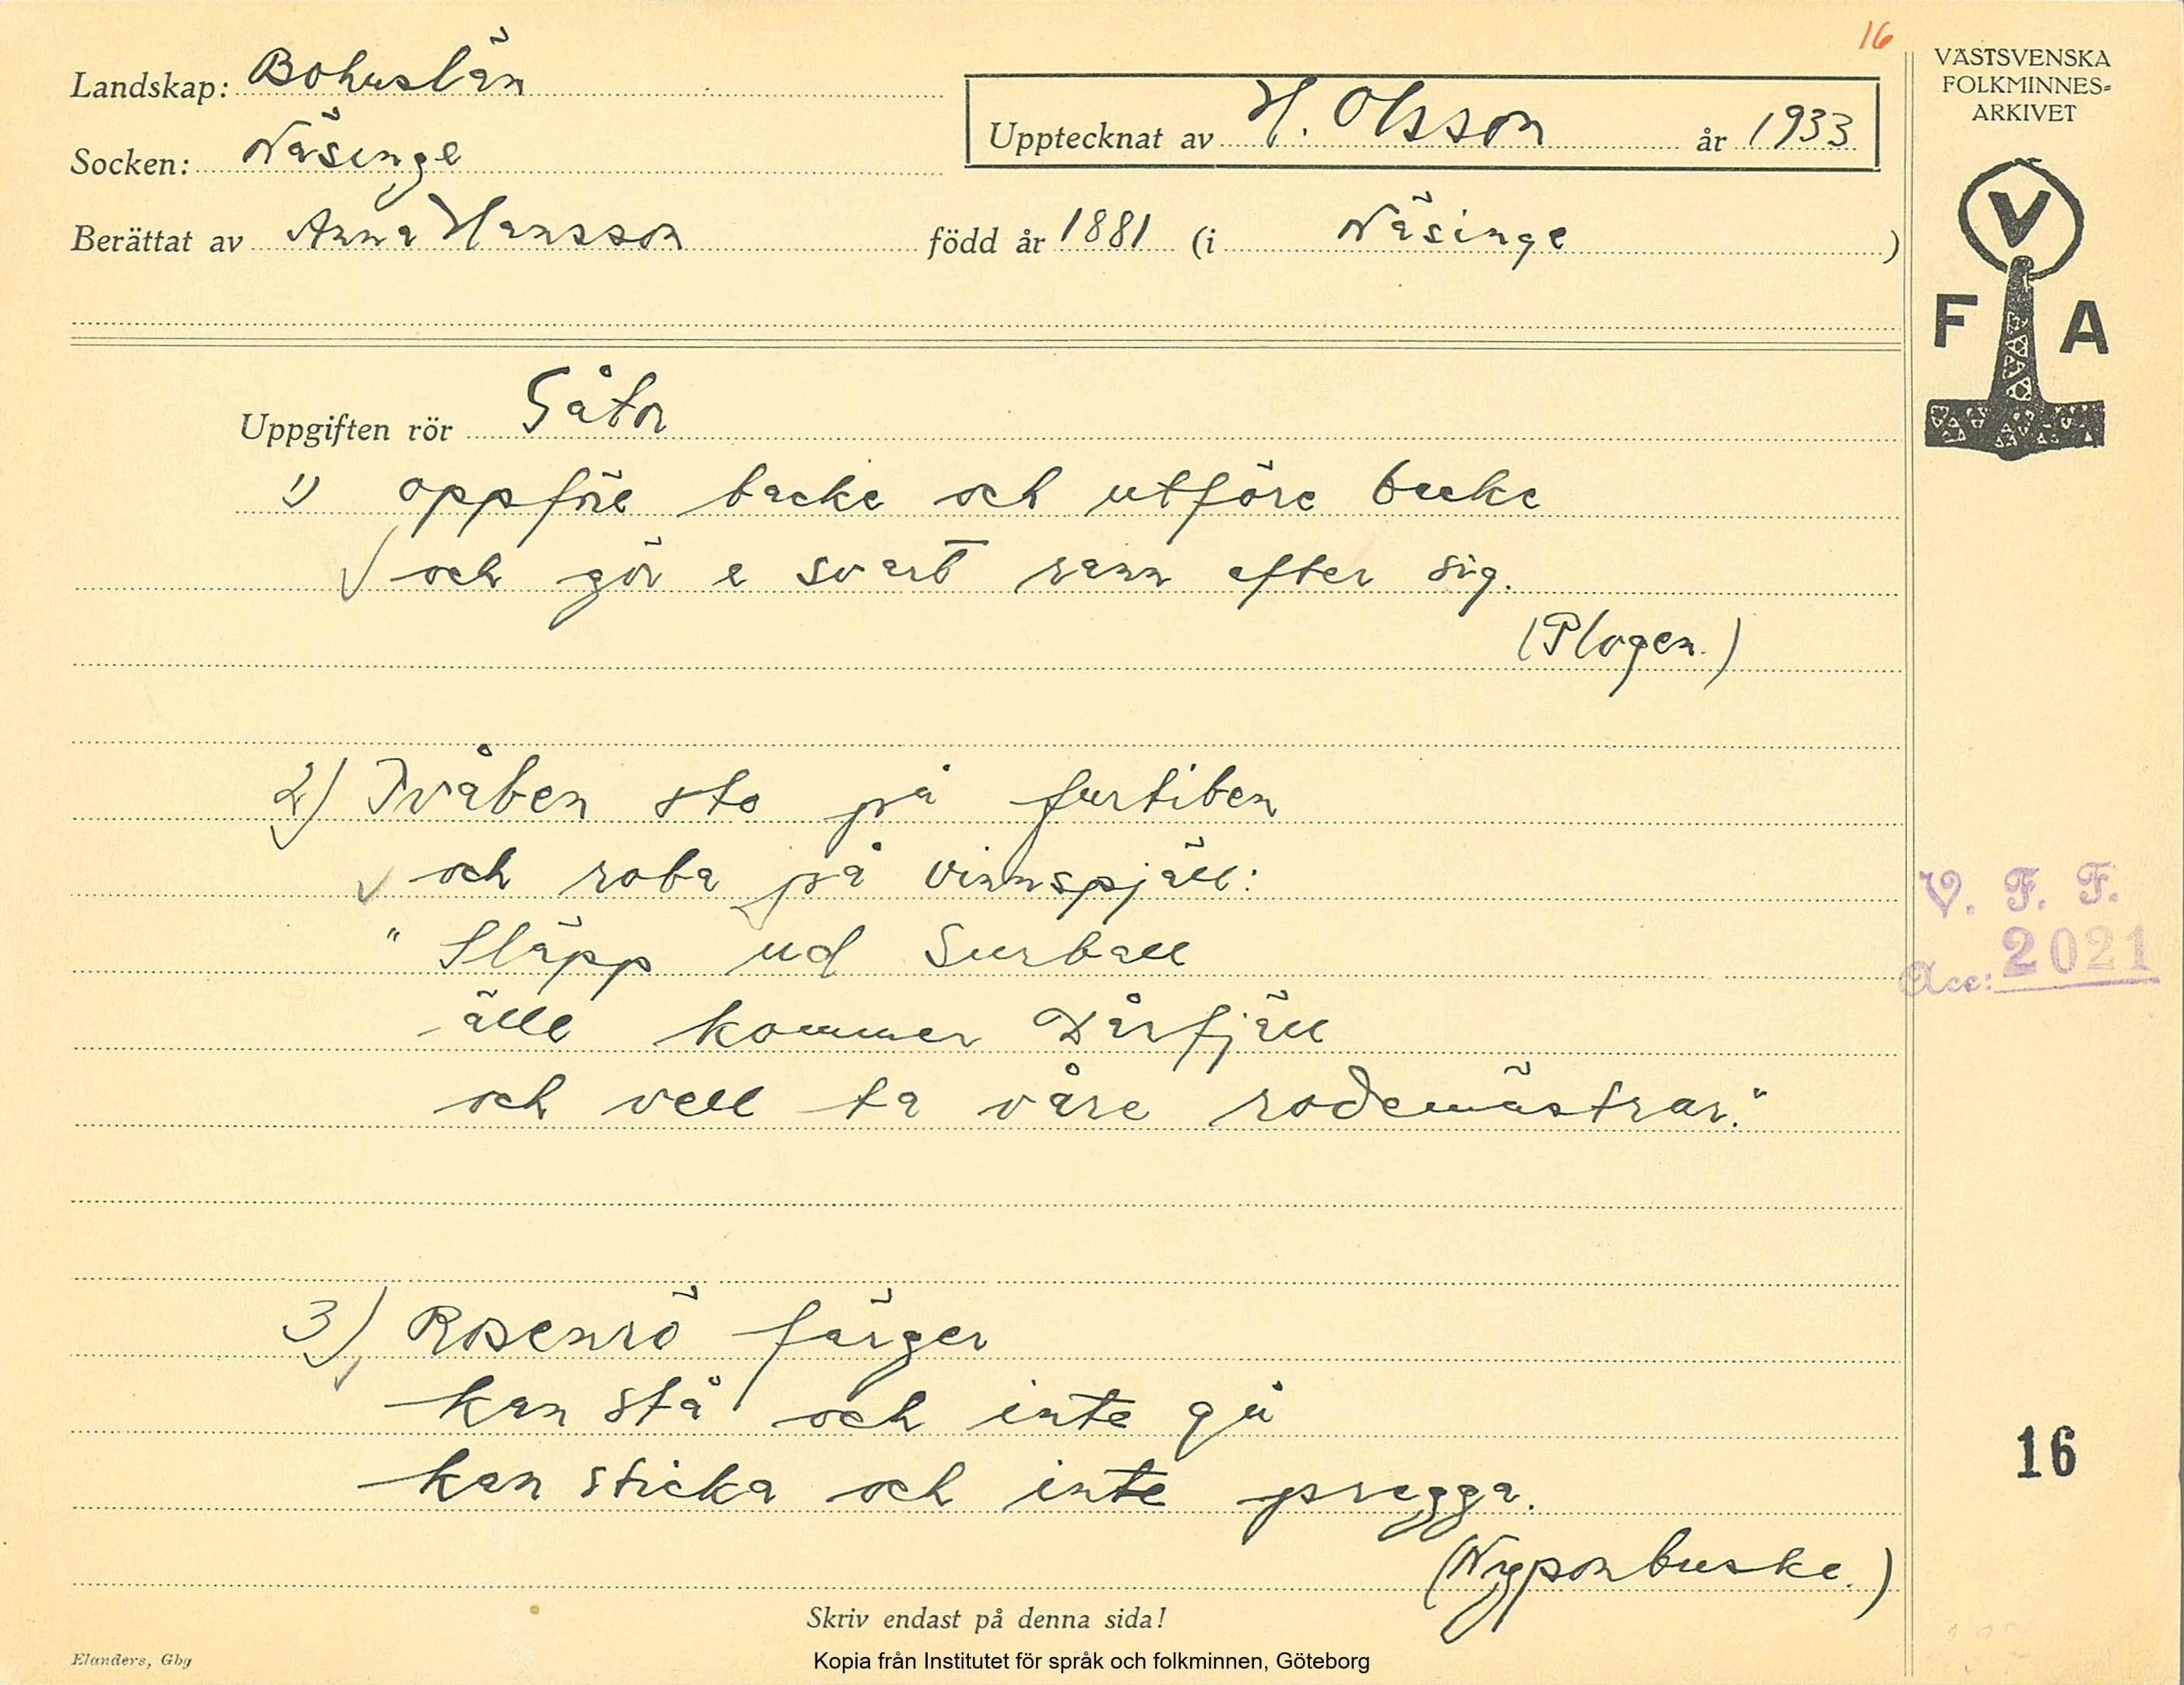 16
Landskap: Bohuslän
Socken: Näsinge
Upptecknat av H. Olsson år 1933
Berättat av Anna Hansson född år 1881 (i Näsinge )
VÄSTSVENSKA
FOLKMINNES-
ARKIVET
V
F A
Uppgiften rör Gåtor
1) oppföre backe och utföre backe
och gör e svart rann efter sig.
(Plogen.)
2) Tvåben sto på furtiben
och roba på vinnspjäll:
" Släpp ud Surball
älle kommer Dårfjäll
och vell ta våre rodemästrar."
V. F. F.
Acc: 2021
3) Rosenrö färger
kan stå och inte gå
kan sticka och inte pregga.
(Nyponbuske.)
16
Skriv endast på denna sida!
Elanders, Gbg
Kopia från Institutet för språk och folkminnen, Göteborg